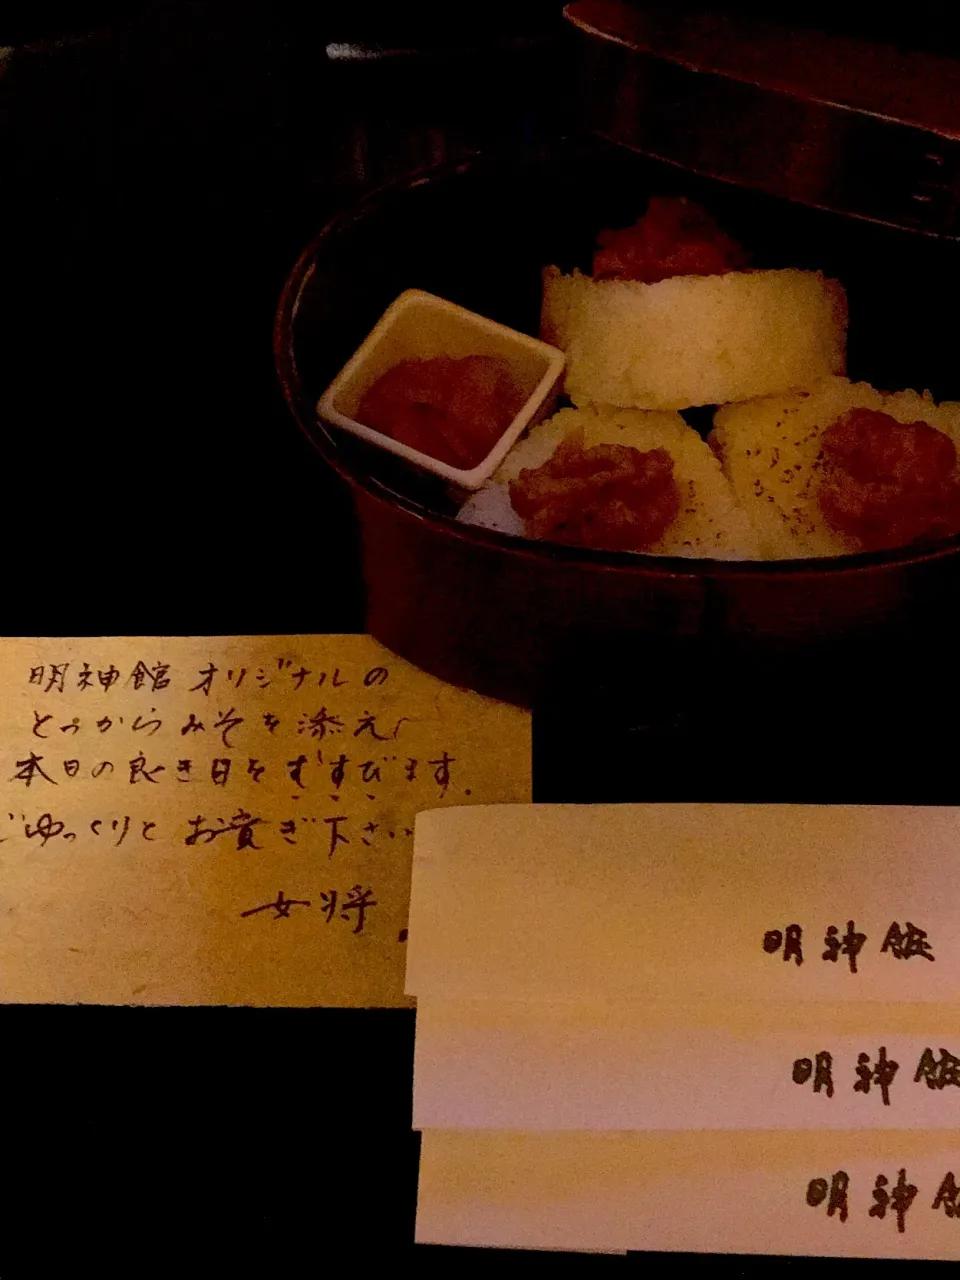 明神館 オリジナルの
とうがらみそを添え
本日の良き日をむすびます。
ごゆっくりとお賓ぎ下さい
女将
明神館
明神館
明神館